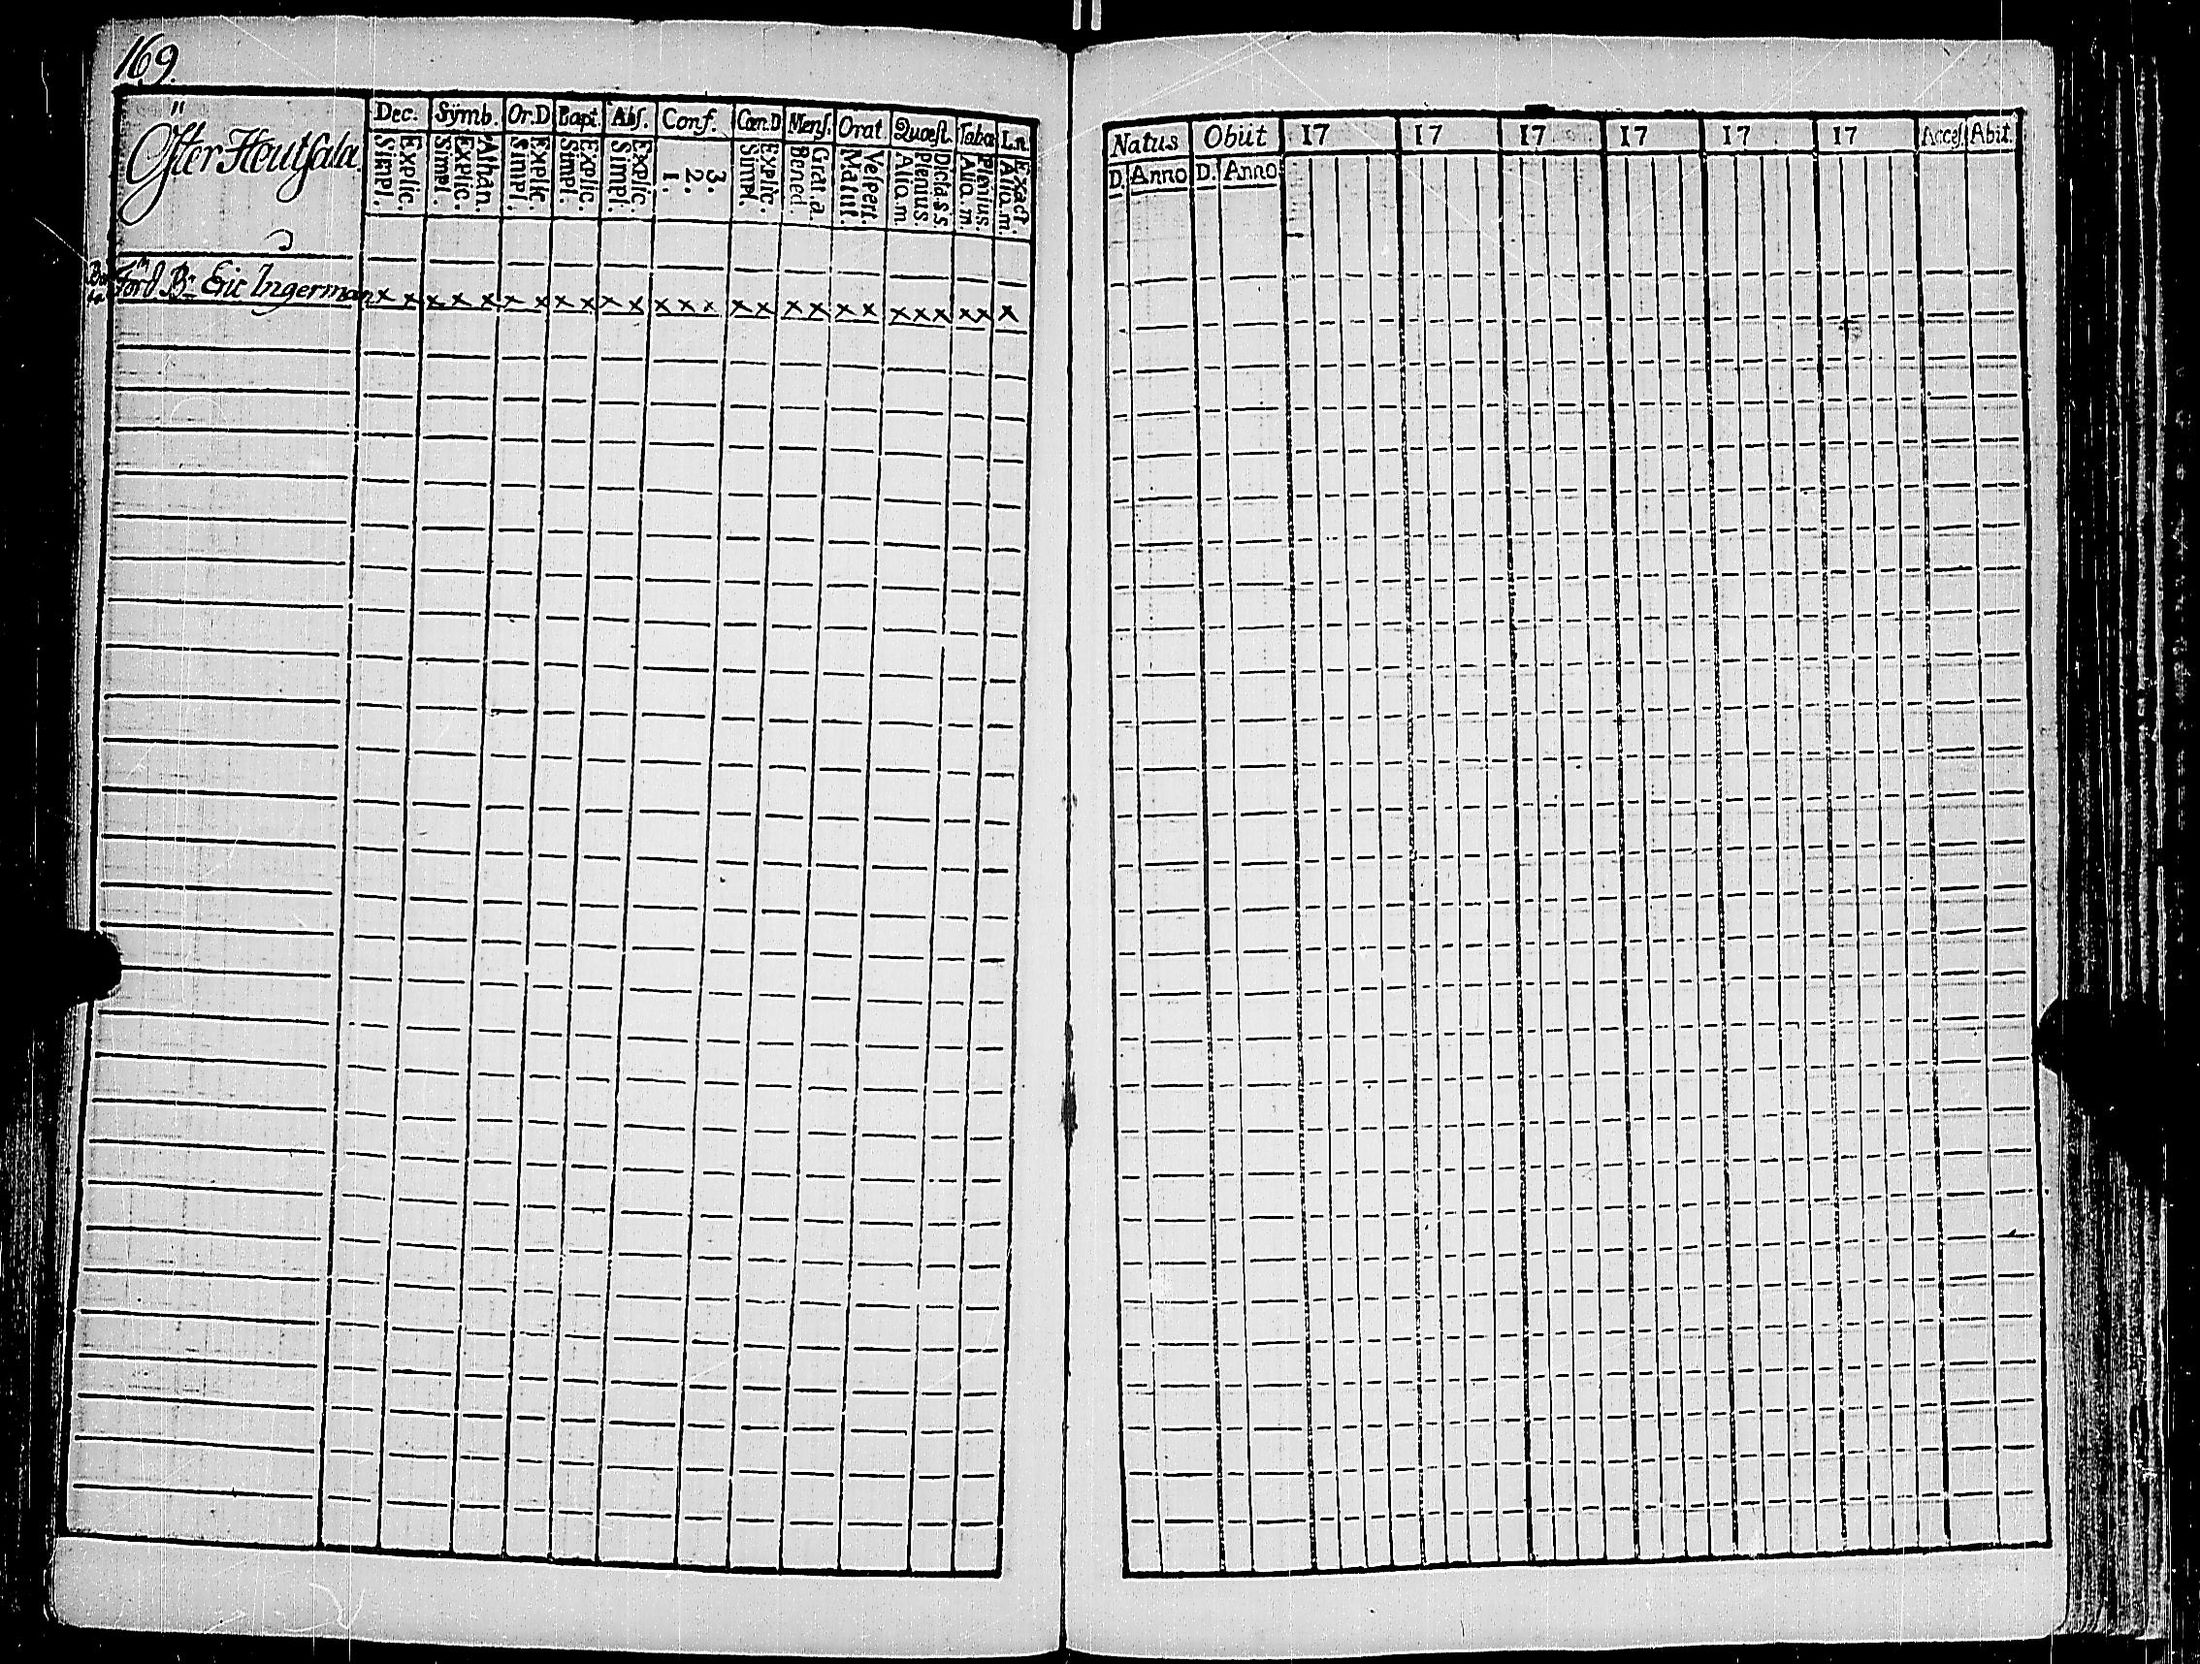 169.
Öſter Heutſala.
Dec. Sÿmb. Or.D Bapt. Abſ. Conf. Cœn.D Menſ. Orat. Quœſt. Tabœ L.n.
Simpl. Explic. Simpl. Explic. Athan. Simpl. Explic. Simpl. Explic. Simpl. Explic. 1. 2. 3. Simpl. Explic. Bened. Grat.a. Matut. Veſpert. Alia.m Plenius. Dicta.s.s. Alia.m Plenius. Alia.m. Exact.
Eric Ingerman x x x x x x x x x x x x x x x x x x x x x x x x x x
Natus Obiit 17 17 17 17 17 17 Acceſ. Abit.
D. Anno D. Anno